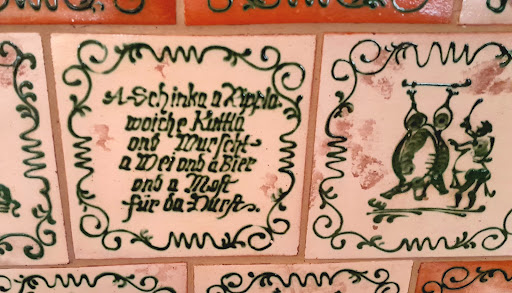 A Schinka a Ripple
woiche Kuttla
ond Wurscht
a Wei ond a Bier
ond a Most
für da Durst.